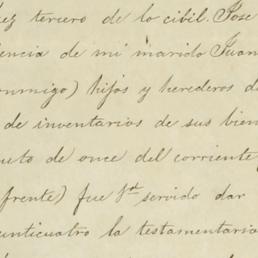 ez tercero de lo cibil. Jose
iencia de mi marido Juan
onmigo) hijos y herederos d
de inventarios de sus bien
uto de once del corriente
frente) fue Vd servido dar
unticuatro la testamentaria